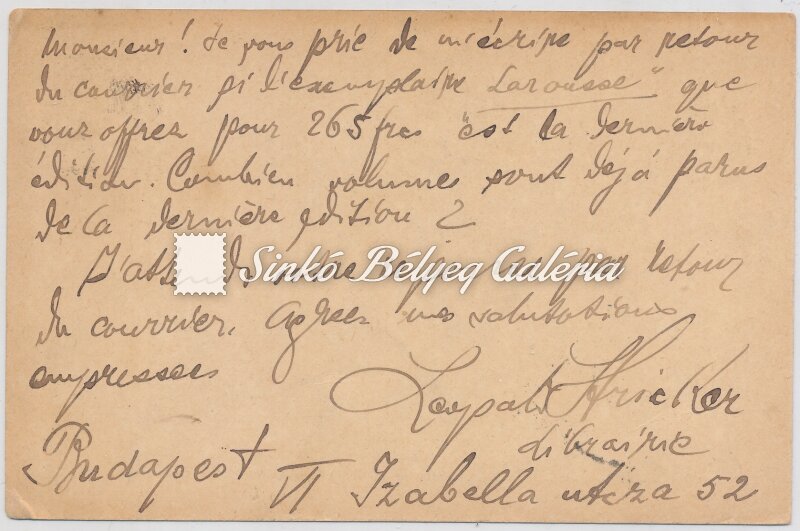 Monsieur! Je vous prie de m'écrire par retour
du courrier si l'exemplaire "Larousse" que
vous offrez pour 265 frcs est la dernière
édition. Combien volumes sont déjà parus
de la dernière édition?
J'attends par retour
Sinkó Bélyeg Galéria
du courrier. Agréez mes salutations
empressees
Leopold Stricker
librairie
Budapest VI Izabella utcza 52